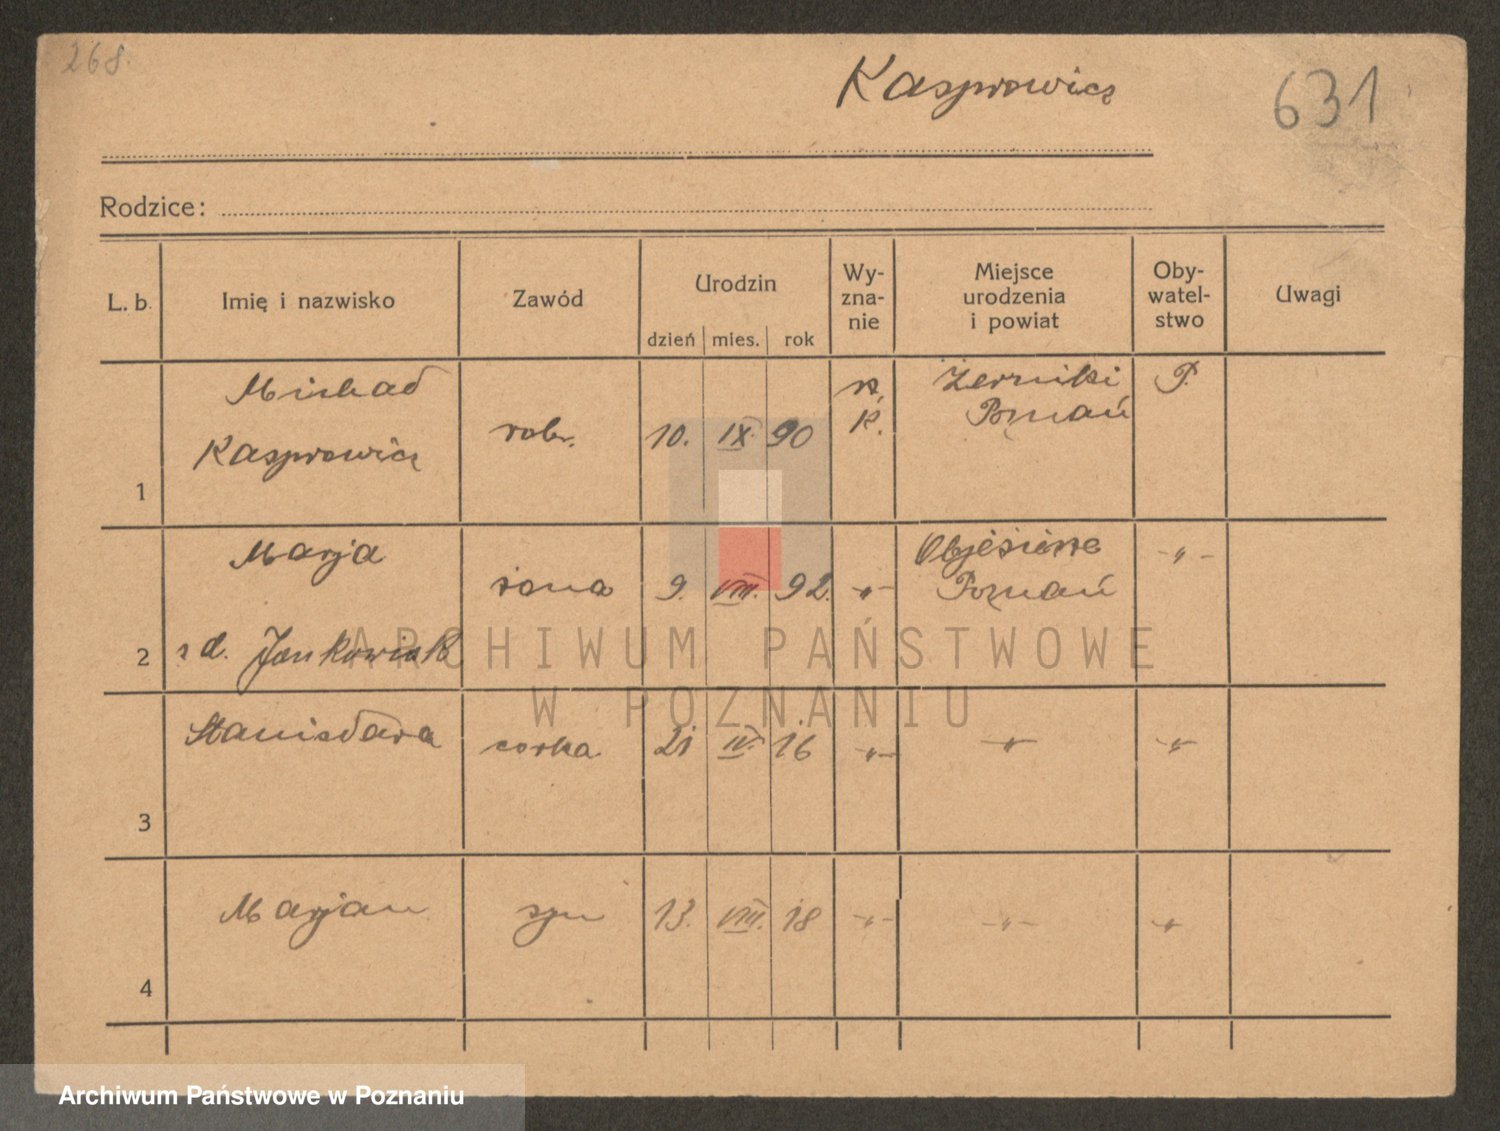 268.
Kasprowicz
631
Rodzice:
L. b.
Imię i nazwisko
Zawód
Urodzin
dzień mies. rok
Wy-
zna-
nie
Miejsce
urodzenia
i powiat
Oby-
watel-
stwo
Uwagi
1
Michał
Kasprowicz
rob.
10. IX. 90
rz.
K.
Żerniki
Poznań
P.
2
Marja
z d. Jankowiak
żona
9. VIII. 92.
-"-
Objezierze
Poznań
-"-
3
Stanisława
corka
21 IV. 16
-"-
-"-
-"-
4
Marjan
syn
13. VIII. 18
-"-
-"-
-"-
ARCHIWUM PAŃSTWOWE
W POZNANIU
Archiwum Państwowe w Poznaniu